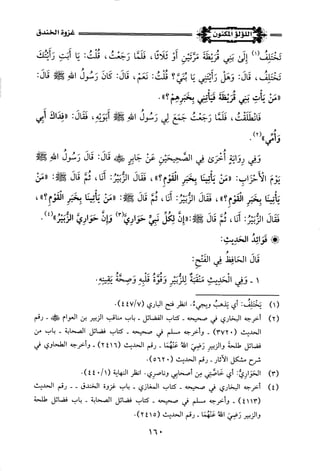 اللؤلؤ المكنون
غزوة الخندق
تَخْتَلِفُ(١) إِلَى بَنِي قُرَيْظَةَ مَرَّتَيْنِ أَوْ ثَلَاثًا، فَلَمَّا رَجَعْتُ، قُلْتُ: يَا أَبَتِ رَأَيْتُكَ
تَخْتَلِفُ، قَالَ: وَهَلْ رَأَيْتَنِي يَا بُنَيَّ؟ قُلْتُ: نَعَمْ، قَالَ: كَانَ رَسُولُ اللهِ ﷺ قَالَ:
«مَنْ يَأْتِ بَنِي قُرَيْظَةَ فَيَأْتِينِي بِخَبَرِهِمْ؟».
فَانْطَلَقْتُ، فَلَمَّا رَجَعْتُ جَمَعَ لِي رَسُولُ اللهِ ﷺ أَبَوَيْهِ، فَقَالَ: «فِدَاكَ أَبِي
وَأُمِّي»(٢).
وَفِي رِوَايَةٍ أُخْرَى فِي الصَّحِيحَيْنِ عَنْ جَابِرٍ ﷺ قَالَ: قَالَ رَسُولُ اللهِ ﷺ
يَوْمَ الْأَحْزَابِ: «مَنْ يَأْتِينَا بِخَبَرِ الْقَوْمِ؟»، فَقَالَ الزُّبَيْرُ: أَنَا، ثُمَّ قَالَ ﷺ: «مَنْ
يَأْتِينَا بِخَبَرِ الْقَوْمِ؟»، فَقَالَ الزُّبَيْرُ: أَنَا، ثُمَّ قَالَ ﷺ: «مَنْ يَأْتِينَا بِخَبَرِ الْقَوْمِ؟»،
فَقَالَ الزُّبَيْرُ: أَنَا، ثُمَّ قَالَ ﷺ: «إِنَّ لِكُلِّ نَبِيٍّ حَوَارِيَّ(٣) وَإِنَّ حَوَارِيَّ الزُّبَيْرُ»(٤).
❁ فَوَائِدُ الْحَدِيثِ:
قَالَ الْحَافِظُ فِي الْفَتْحِ:
١ - وَفِي الْحَدِيثِ مَنْقَبَةٌ لِلزُّبَيْرِ وَقُوَّةُ قَلْبِهِ وَصِحَّةُ يَقِينِهِ.
(١) يَخْتَلِفُ: أي يَذهبُ ويجيءُ. انظر فتح الباري (٤٤٧/٧).
(٢) أخرجه البخاري في صحيحه - كتاب الفضائل - باب مناقب الزبير بن العوام ﷺ - رقم
الحديث (٣٧٢٠) - وأخرجه مسلم في صحيحه - كتاب فضائل الصحابة - باب من
فضائل طلحة والزبير رَضِيَ اللهُ عَنْهُمَا - رقم الحديث (٢٤١٦) - وأخرجه الطحاوي في
شرح مشكل الآثار - رقم الحديث (٥٦٢٠).
(٣) الحَوَارِيُّ: أي خَاصَّتِي من أصحابي وناصري. انظر النهاية (٤٤٠/١).
(٤) أخرجه البخاري في صحيحه - كتاب المغازي - باب غزوة الخندق - - رقم الحديث
(٤١١٣) - وأخرجه مسلم في صحيحه - كتاب فضائل الصحابة - باب فضائل طلحة
والزبير رَضِيَ اللهُ عَنْهُمَا - رقم الحديث (٢٤١٥).
١٦٠